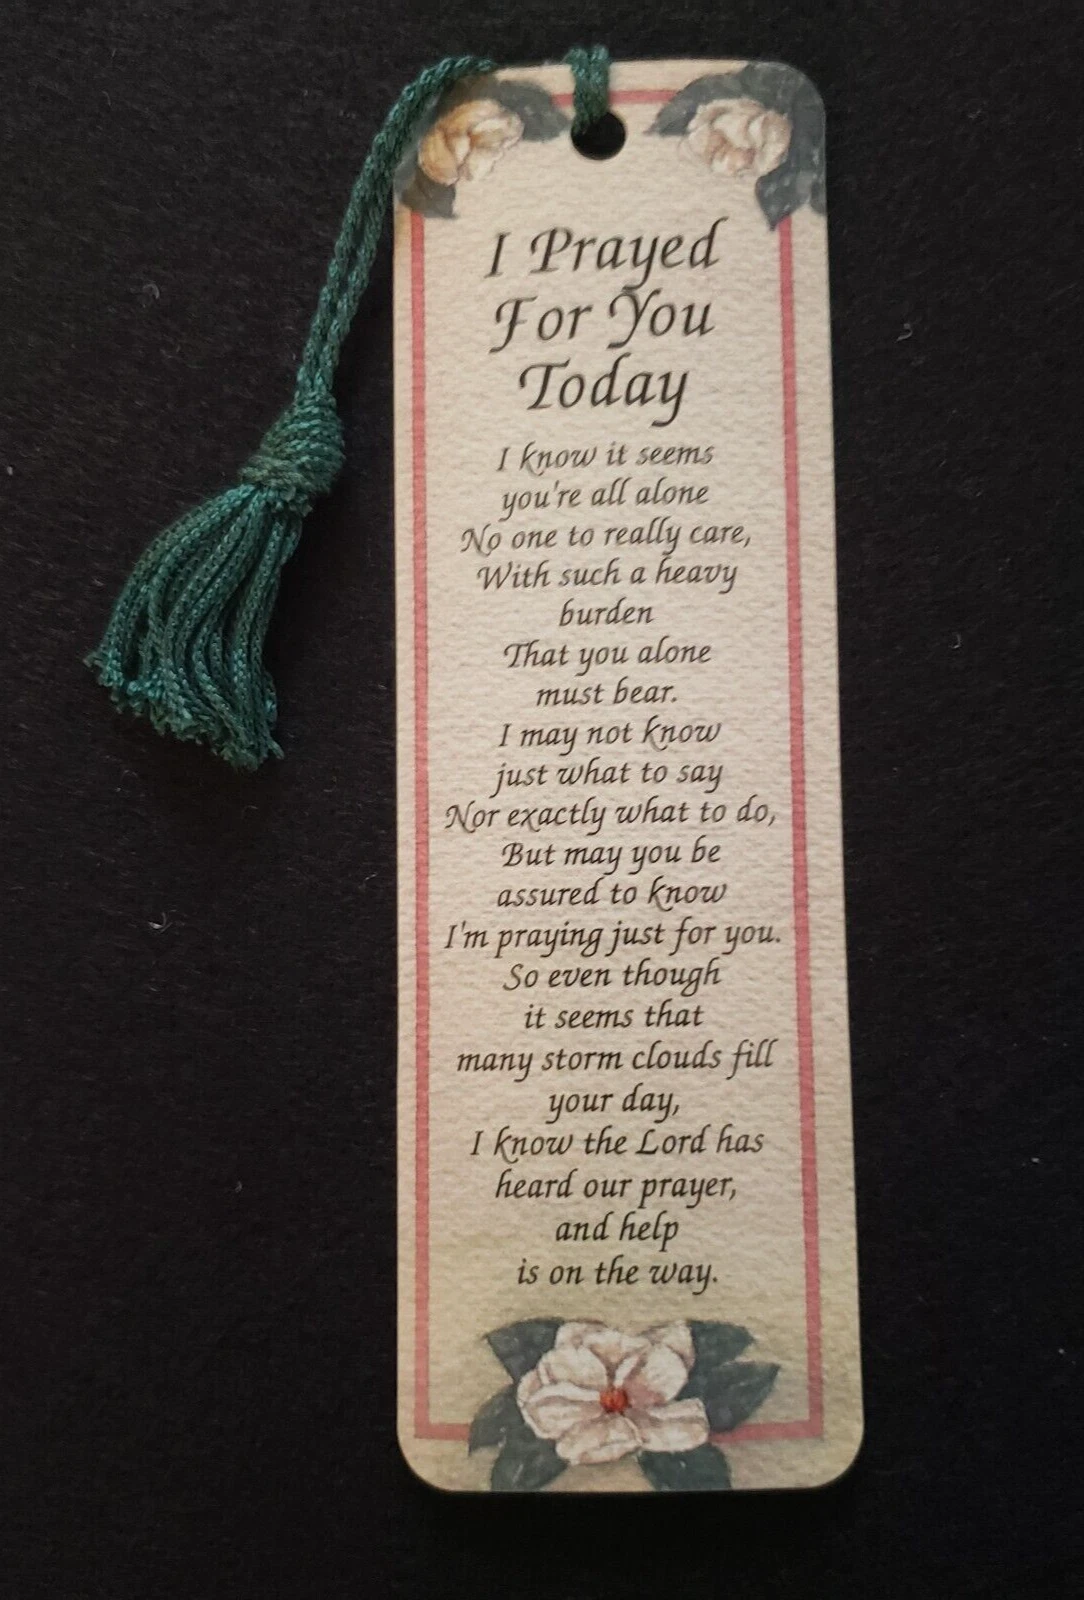 I Prayed
For You
Today
I know it seems
you're all alone
No one to really care,
With such a heavy
burden
That you alone
must bear.
I may not know
just what to say
Nor exactly what to do,
But may you be
assured to know
I'm praying just for you.
So even though
it seems that
many storm clouds fill
your day,
I know the Lord has
heard our prayer,
and help
is on the way.